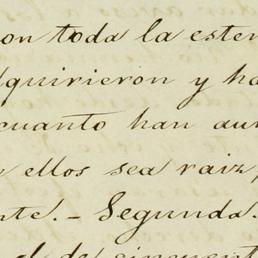 con toda la esten
dquirieron y ha
cuanto han au
ellos sea raiz,
nte. - Segunda.
d de cincuent